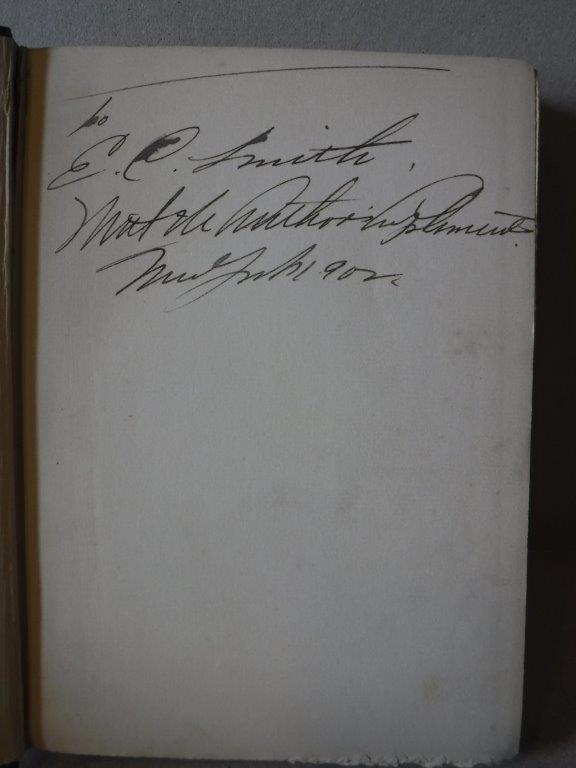 to
E. C. Smith,
With the Author's compliments.
New York 1902.